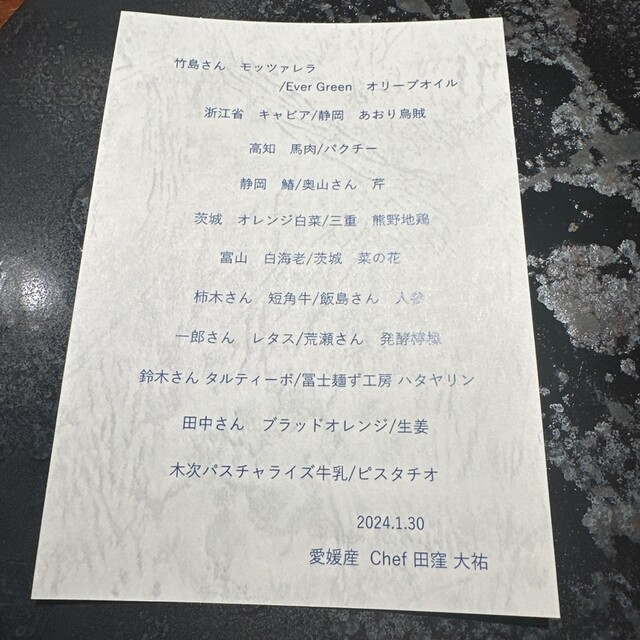 竹島さん　モッツァレラ
/Ever Green　オリーブオイル
浙江省　キャビア/静岡　あおり烏賊
高知　馬肉/パクチー
静岡　鰆/奥山さん　芹
茨城　オレンジ白菜/三重　熊野地鶏
富山　白海老/茨城　菜の花
柿木さん　短角牛/飯島さん　人参
一郎さん　レタス/荒瀬さん　発酵檸檬
鈴木さん タルティーボ/冨士麺ず工房 ハタヤリン
田中さん　ブラッドオレンジ/生姜
木次パスチャライズ牛乳/ピスタチオ
2024.1.30
愛媛産 Chef 田窪 大祐